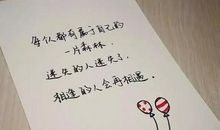 每个人都有属于自己的
一片森林
迷失的人迷失了,
相逢的人会再相遇。